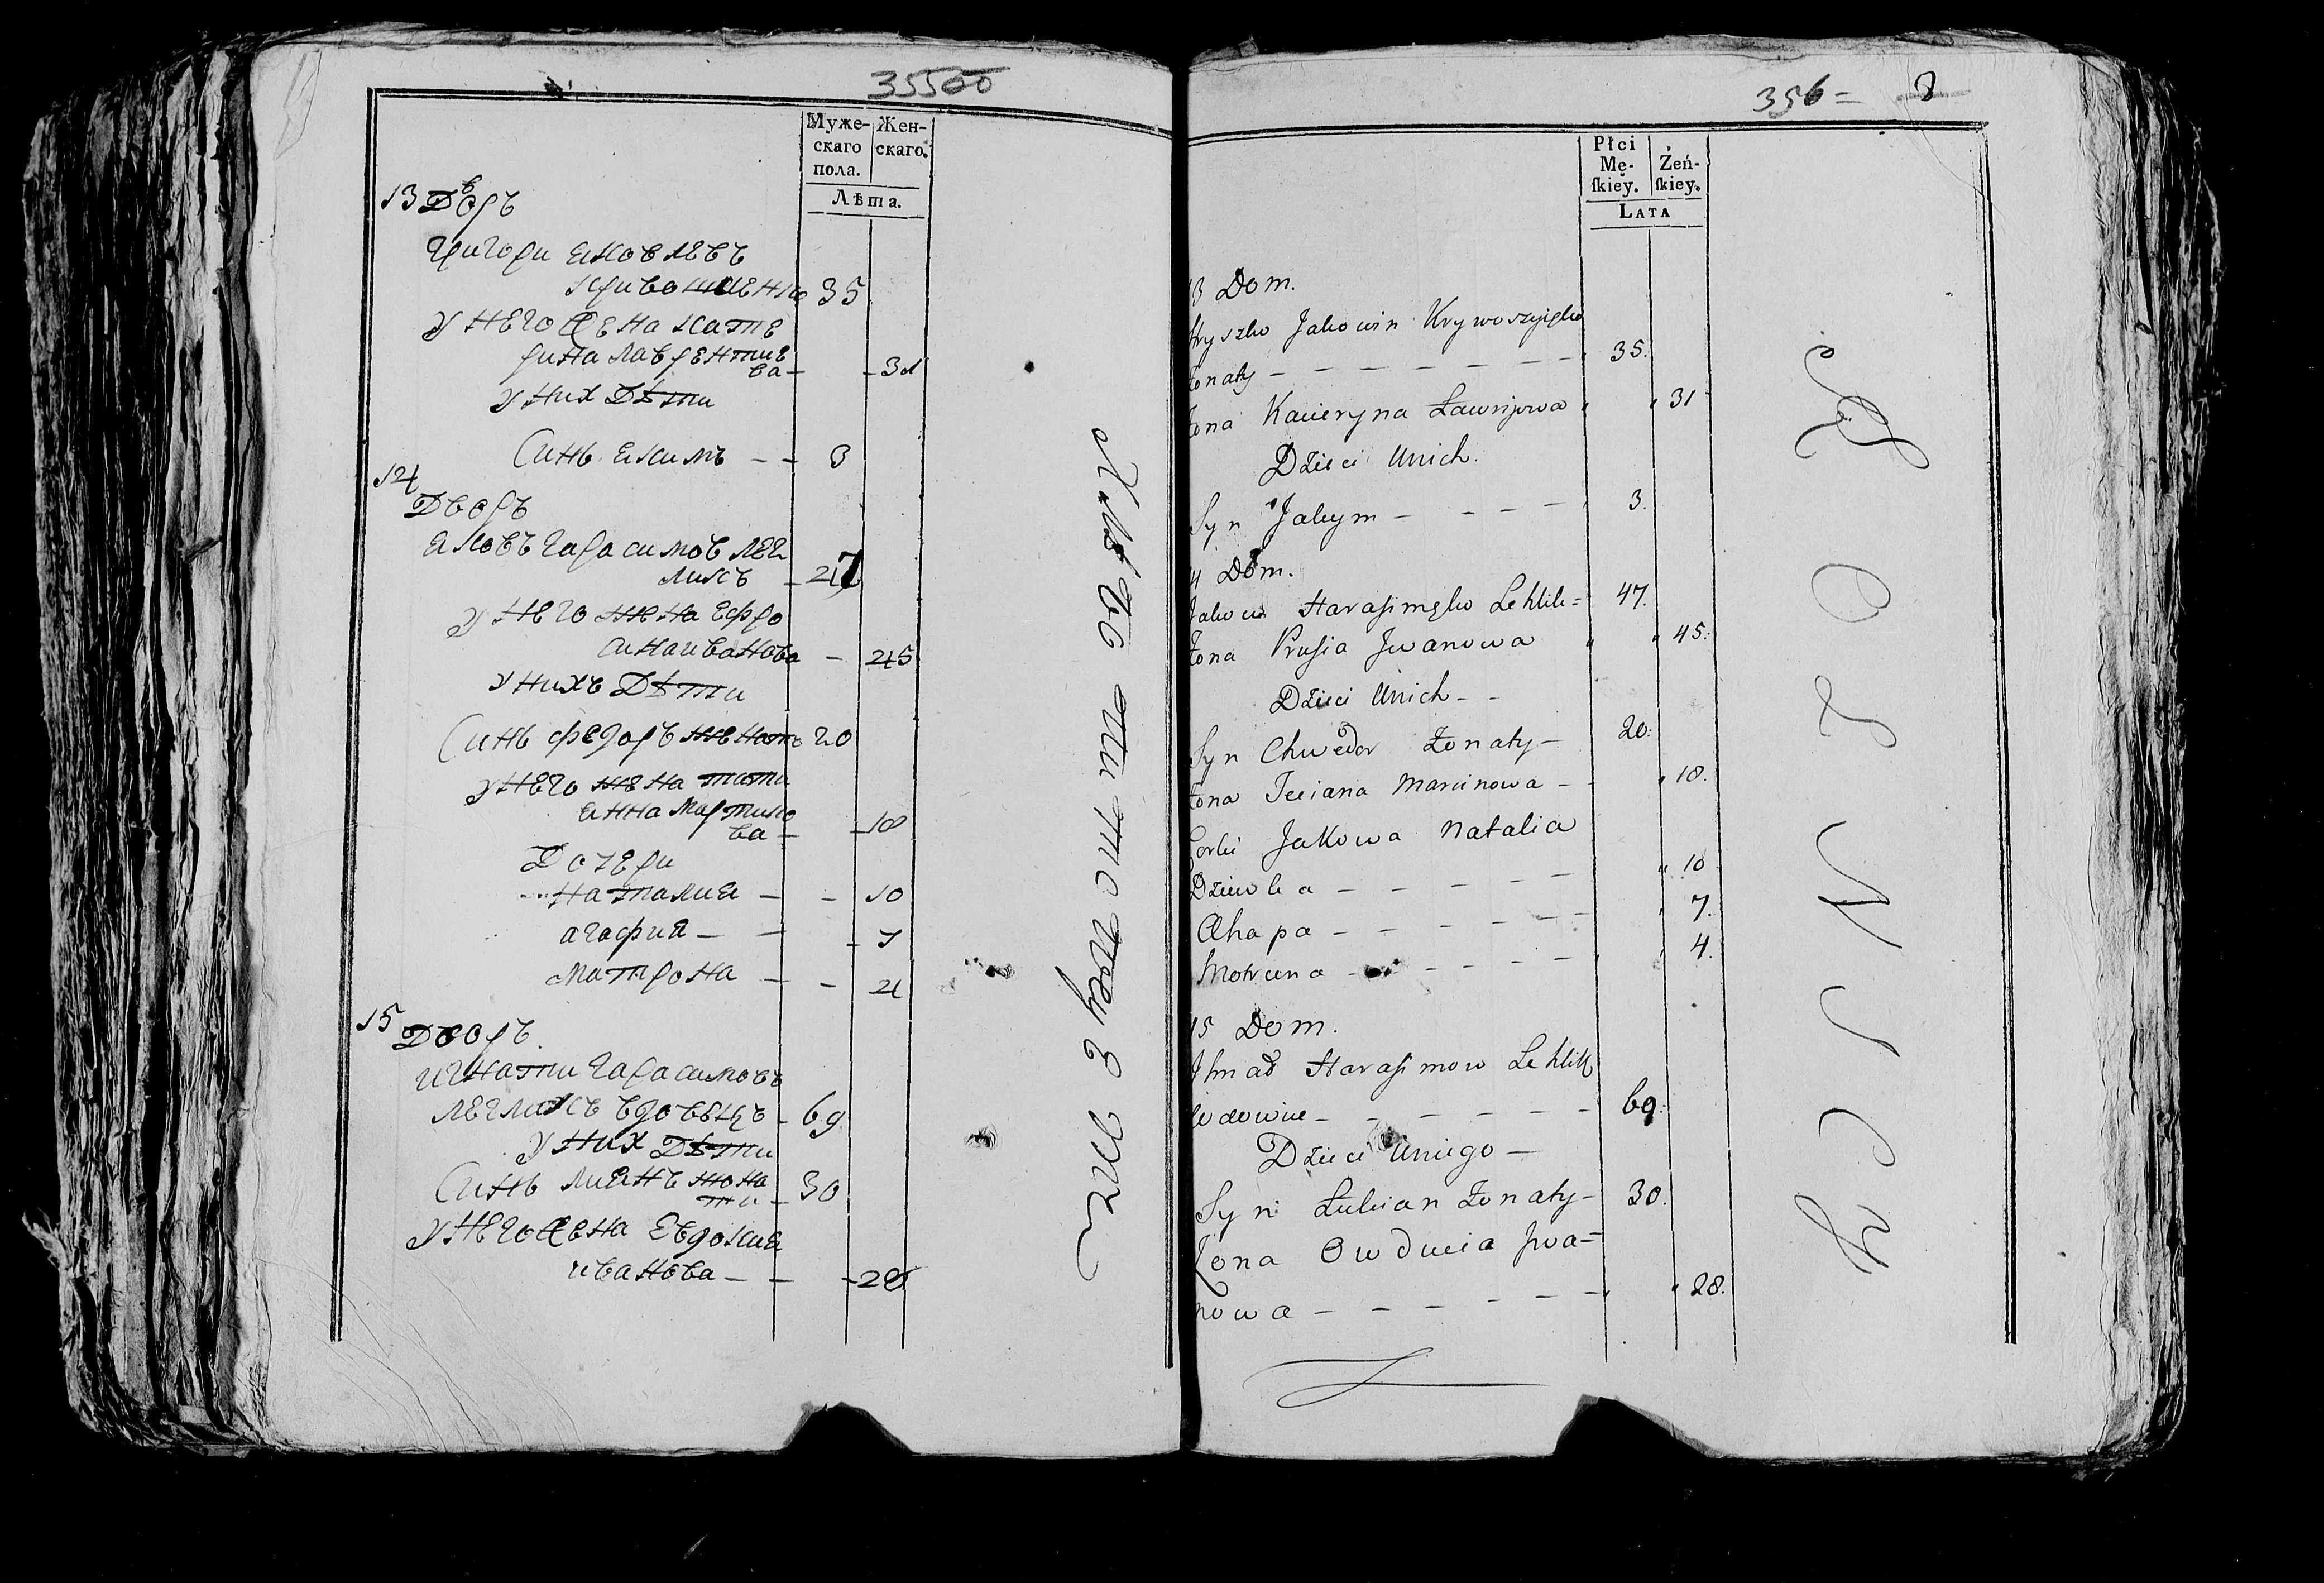 35500
Муже-
скаго
пола.
Жен-
скаго.
Лѣта.
13 Дворъ
григори яковлевъ
кривошиенко 35
у него жена кате
рина лаврентие
ва - - 31
у них дѣти
Синь якимъ - - 3
14
Дворъ
яковъ гарасимов лег
ликъ - 47
у него жена ефро
сина иванова - 45
у нихъ дѣти
Синь федоръ женатъ 20
у него жена тати
янна мартино
ва - - 18
Дочери
наталия - - 10
агафия - - 7
матрона - - 4
15
Дворъ
игнати гарасимовъ
леглихъ вдовецъ - 69
у них дѣти
Синь лиянъ жона
ти - 30
у него жена евдокия
иванова - - 28
356 = 8
Płci
Mę-
ſkiey.
Żeń-
ſkiey.
LATA
13 Dom.
Hryszko Jakowin Krywoszyięko
żonaty - - - - - - 35.
żona Kacieryna Ławrijowa " " 31
Dzieci Unich.
Syn Jakym - - - - 3.
14 Dom.
Jakow Harasimęko Lehlik= 47.
Żona Prusia Jwanowa " " 45.
Dzieci Unich - -
Syn Chwedor Żonaty - 20.
żona Teciana Marcinowa - - " 18.
Corki Jakowa Natalia
Dziewka - - - - - " 10
Ahapa - - - - - 7.
Motruna - - - - - 4.
15 Dom.
Jhnad Harasimow Lehlik
wdowiec - - - - - - 69.
Dzieci Uniego -
Syn Łukian Żonaty - 30.
Żona Owducia Jwa=
nowa - - - - - - " 28.